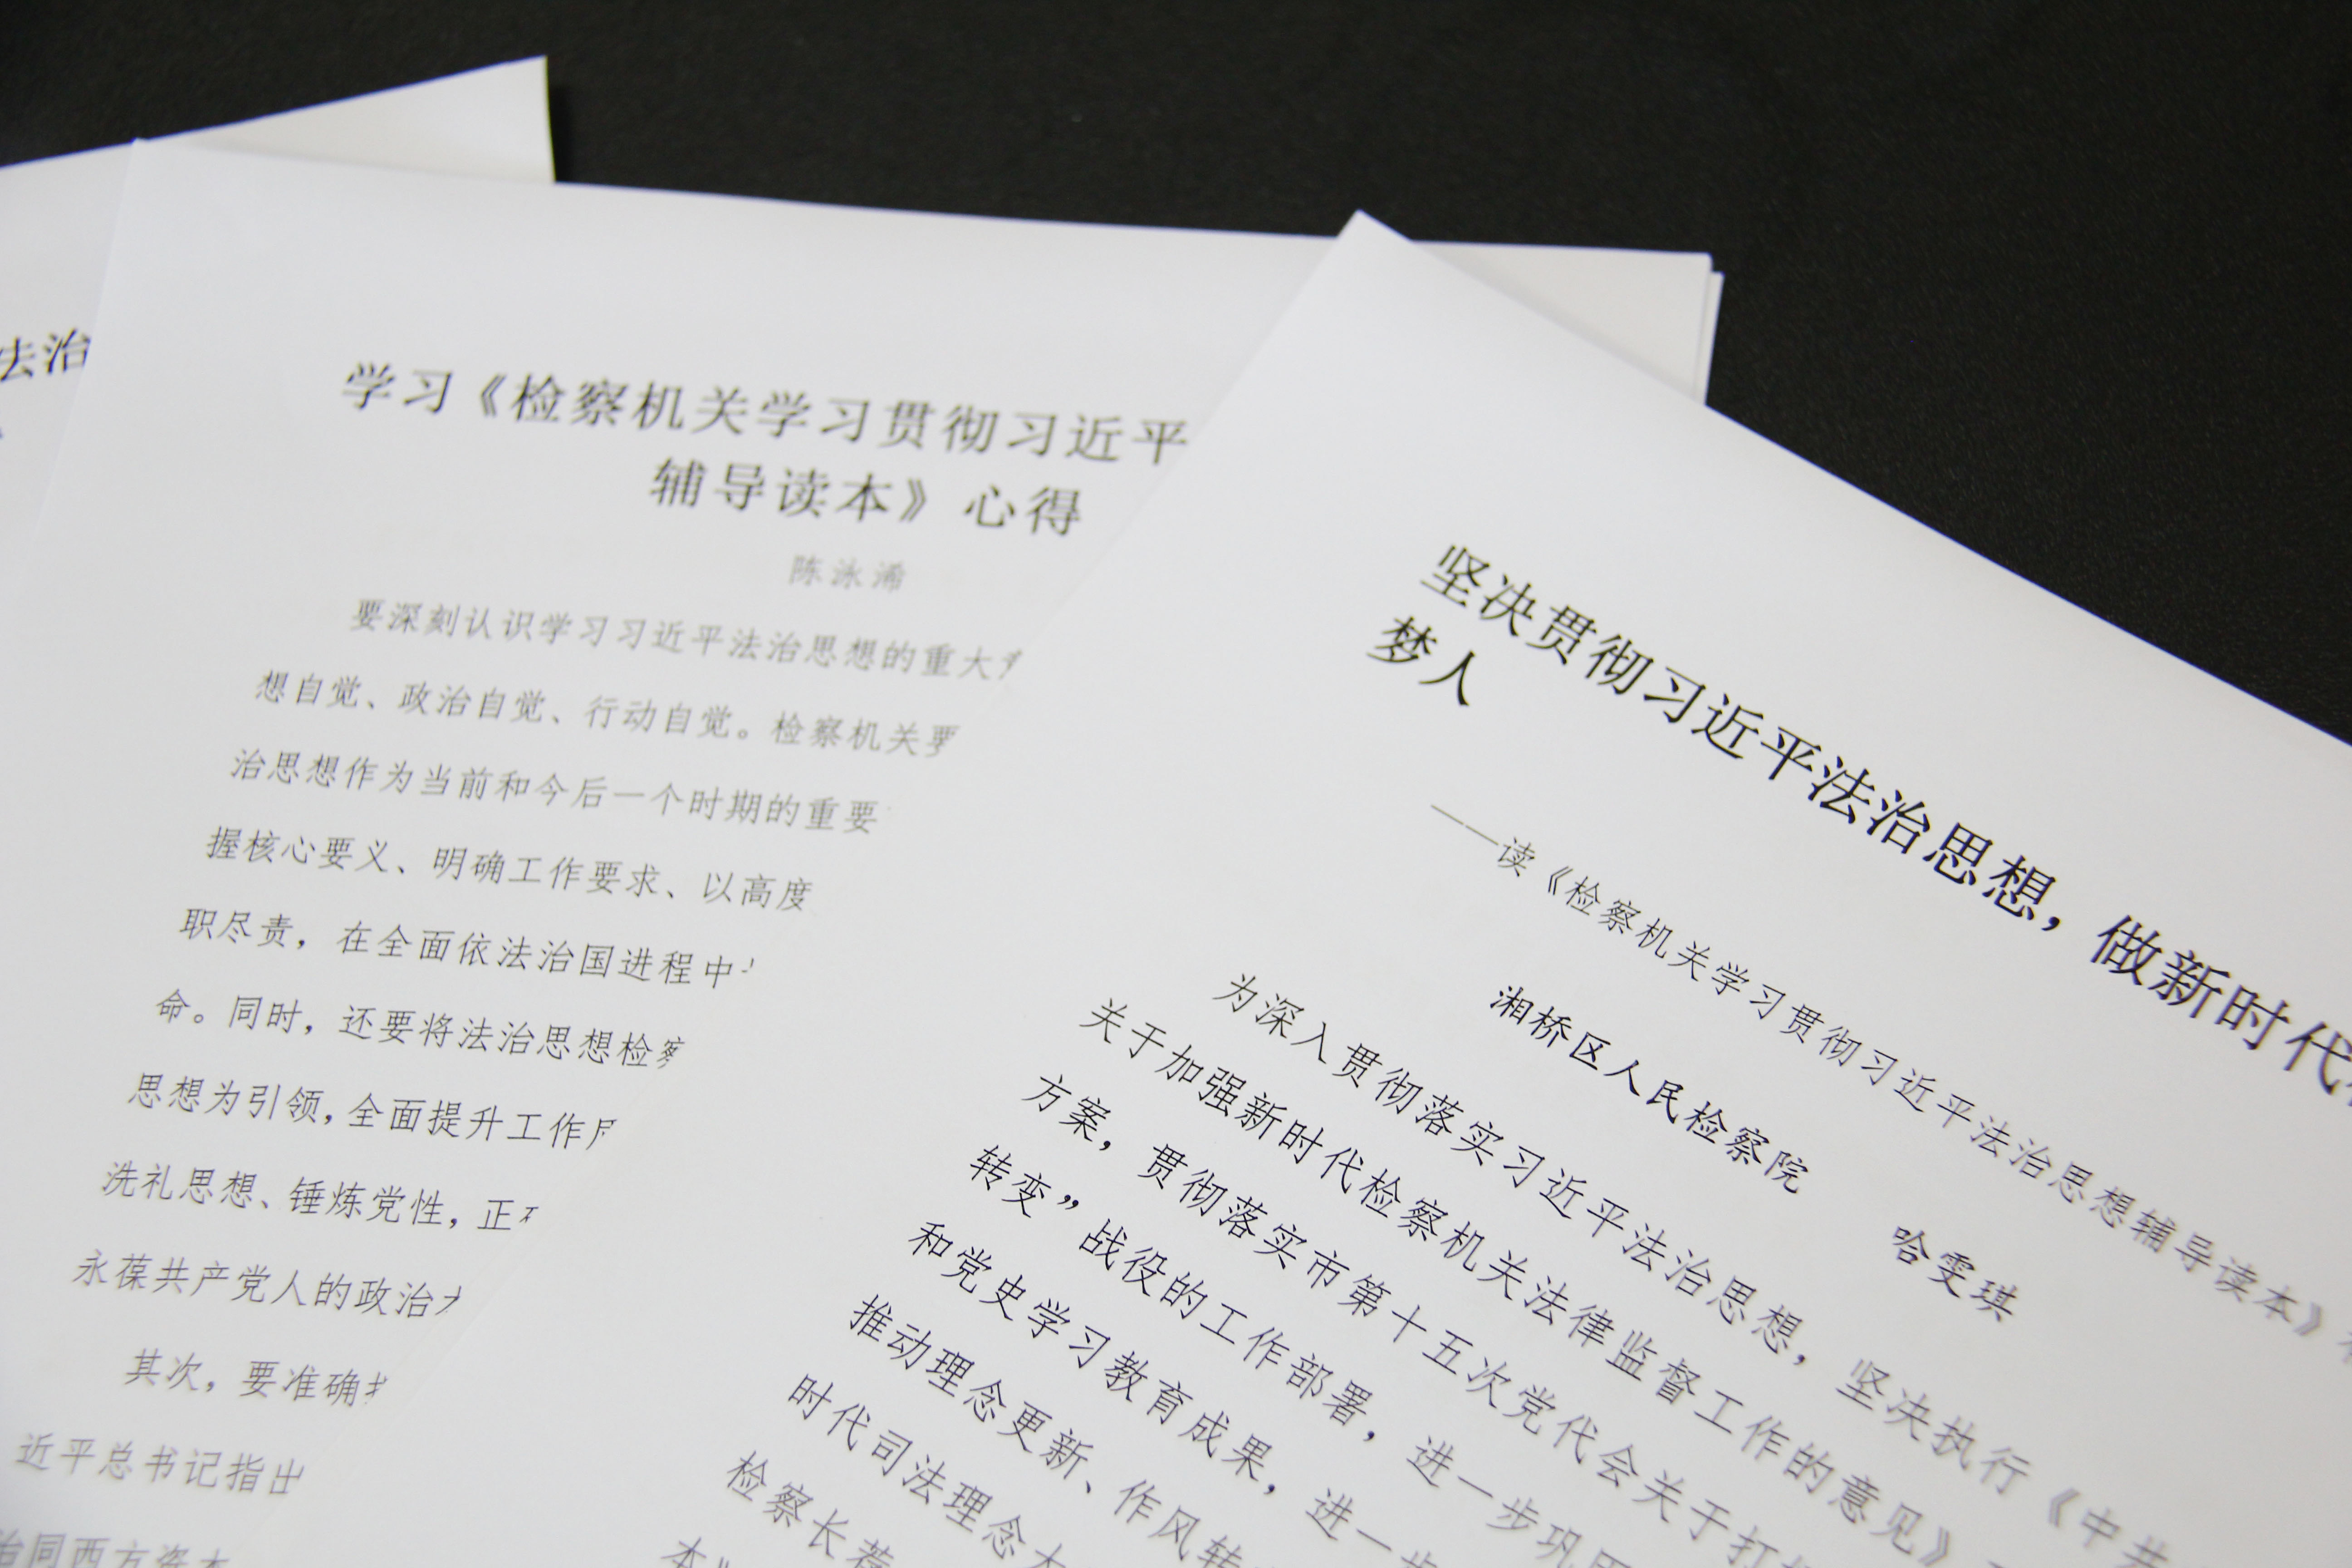 法治
学习《检察机关学习贯彻习近平
辅导读本》心得
陈泳浠
要深刻认识学习习近平法治思想的重大
想自觉、政治自觉、行动自觉。检察机关要
治思想作为当前和今后一个时期的重要
握核心要义、明确工作要求、以高度
职尽责，在全面依法治国进程中
命。同时，还要将法治思想检察
思想为引领，全面提升工作
洗礼思想、锤炼党性，正
永葆共产党人的政治
其次，要准确
近平总书记指出
治同西方资本
坚决贯彻习近平法治思想，做新时代
梦人
——读《检察机关学习贯彻习近平法治思想辅导读本》
湘桥区人民检察院 哈雯琪
为深入贯彻落实习近平法治思想，坚决执行《中共
关于加强新时代检察机关法律监督工作的意见》
方案，贯彻落实市第十五次党代会关于打
转变”战役的工作部署，进一步巩固
和党史学习教育成果，进一步
推动理念更新、作风转
时代司法理念
检察长荐
本